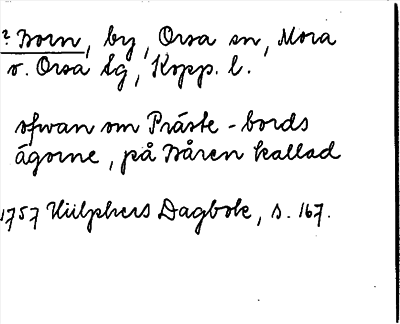 ? Born, by, Orsa sn, Mora
o. Orsa tg, Kopp. l.
ofwan om Präste-bords
ägorne, på Båren kallad
1757 Hülphers Dagbok, s. 167.